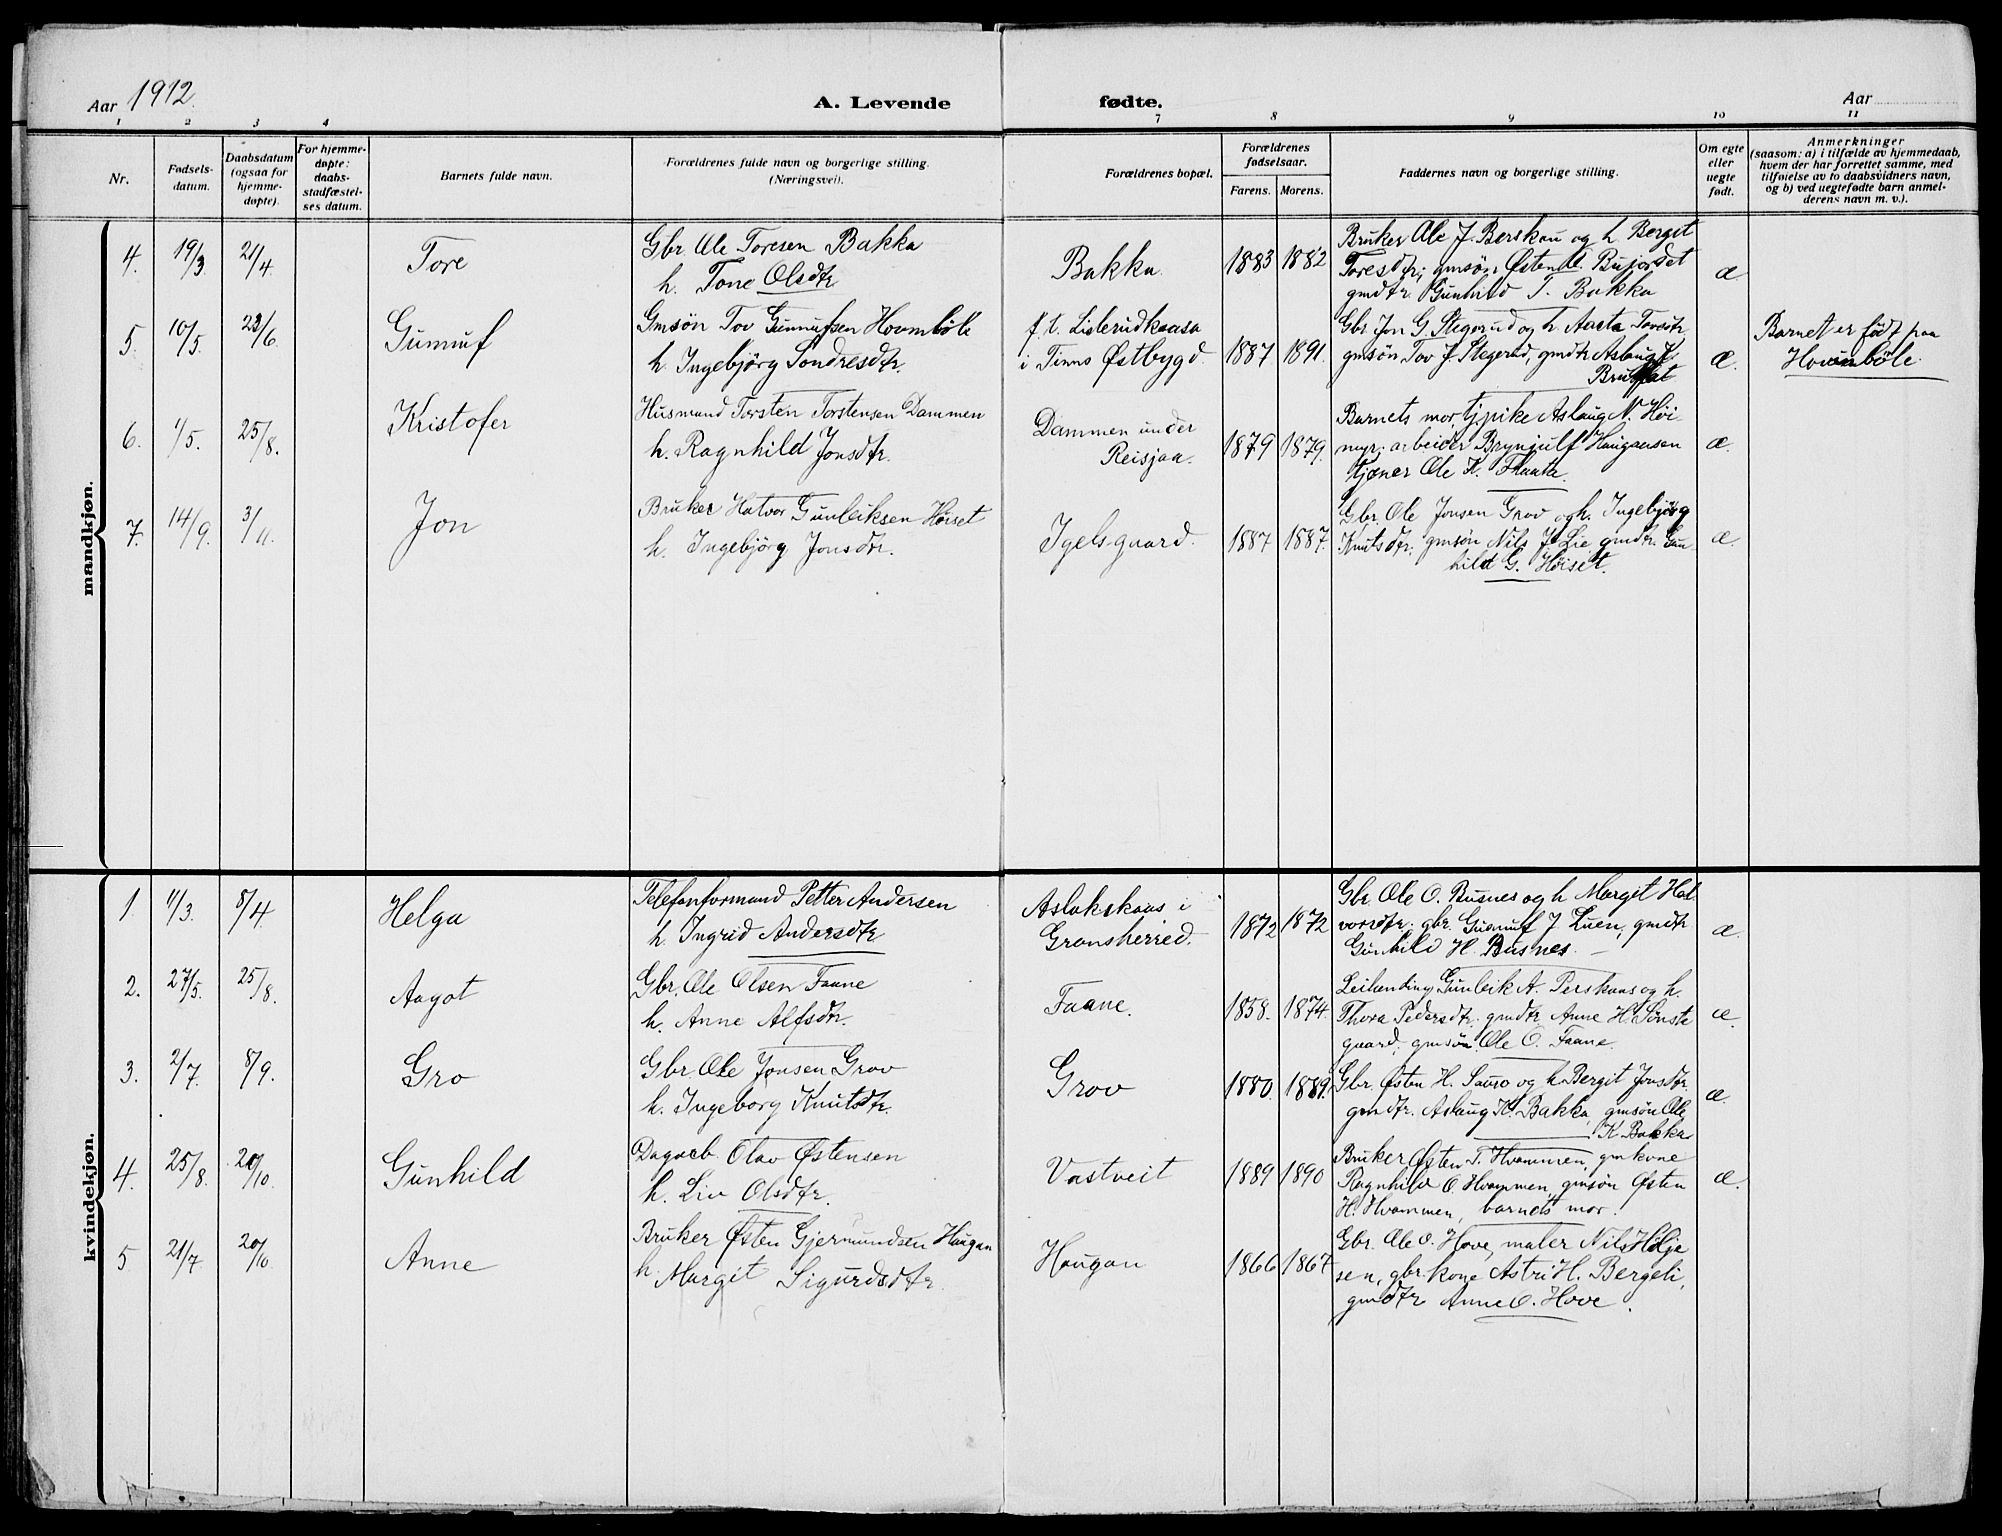 Aar 1912.
A. Levende
fødte.
Aar
1 2 3 4 7 8 9 10 11
Nr.
Fødsels-
datum.
Daabsdatum
(ogsaa for
hjemme-
døpte).
For hjemme-
døpte:
daabs-
stadfæstel-
ses datum.
Barnets fulde navn.
Forældrenes fulde navn og borgerlige stilling.
(Næringsvei).
Forældrenes bopæl.
Forældrenes
fødselsaar.
Farens. Morens.
Faddernes navn og borgerlige stilling.
Om egte
eller
uegte
født.
Anmerkninger
(saasom: a) i tilfælde av hjemmedaab,
hvem der har forrettet samme, med
tilføielse av to daabsvidners navn,
og b) ved uegtefødte barn anmel-
derens navn m. v.).
mandkjøn.
4. 19/3 21/4. Tore
Gbr. Ole Toresen Bakka
h. Tone Olsdtr
Bakka. 1883 1882
Bruker Ole J. Berskau og h. Bergit
Toresdtr; gmsön Østen Bujordet
gmdtr. Gunhild T. Bakka
æ
5. 10/5. 23/6. Gunnuf
Gmsön Tov Gunnufsen Hovmböle
h. Ingebjörg Sondresdtr.
f. t. Lislerudkaasa
i Tinns Østbygd. 1887 1891.
Gbr. Jon G. Stegerud og h. Aasta Tovsdtr
gmsön Tov J. Stegerud, gmdtr Aslaug J.
æ.
Barnet er födt paa
Hovinböle.
6. 1/5. 25/8. Kristofer
Husmand Torsten Torstensen Dammen
h. Ragnhild Jonsdtr.
Dammen under
Reisjaa. 1879 1879.
Barnets mor, tjpike Aslaug N. Höi-
myr; arbeider Brynjulf Haugansen
tjener Ole K. Flaata.
æ.
7. 14/9. 3/11. Jon
Bruker Halvor Gunleiksen Höiset
h. Ingebjörg Jonsdtr.
Igelsgaard. 1887 1887.
Gbr. Ole Jonsen Grov og h. Ingebjörg
Knutsdtr; gmsön Nils J. Lie, gmdtr. Gun-
hild G. Höiset.
æ.
kvindekjøn.
1. 11/3. 8/4. Helga
Telefonformand Petter Andersen
h. Ingrid Andersdtr
Aslakskaas i
Gransherred. 1872 1872
Gbr. Ole O. Busnes og h. Margit Hal-
vorsdtr; gbr. Gunnuf J. Luen, gmdtr
Gunhild H. Busnes.
æ.
2. 27/5. 25/8. Aagot
Gbr. Ole Olsen Faane
h. Anne Alfsdtr.
Faane. 1858. 1874.
Leilending Gunleik A. Perskaas og h.
Thora Pedersdtr; gmdtr Anne H. Sönste
gaard; gmsön Ole O. Faane.
æ.
3. 2/7. 8/9. Gro
Gbr. Ole Jonsen Grov
h. Ingeborg Knutsdtr.
Grov 1880. 1889.
Gbr. Østen H. Sauro og h. Bergit Jonsdtr.
gmdtr. Aslaug K. Bakka, gmsön Ole
K. Bakka
æ.
4. 25/8. 20/10. Gunhild
Dagarb. Olav Østensen
h. Liv Olsdtr.
Vastveit 1889 1890
Bruker Østen T. Hvammen, gmkone
Ragnhild O. Hvammen, gmsön Østen
H. Hvammen, barnets mor.
æ.
5 21/7 20/10. Anne
Bruker Østen Gjermundsen Haugan
h. Margit Sigurdsdtr.
Haugan 1866 1867
Gbr. Ole O. Hove, maler Nils Helje
sen, gbr.kone Astri H. Bergeli,
gmdtr Anne O. Hove.